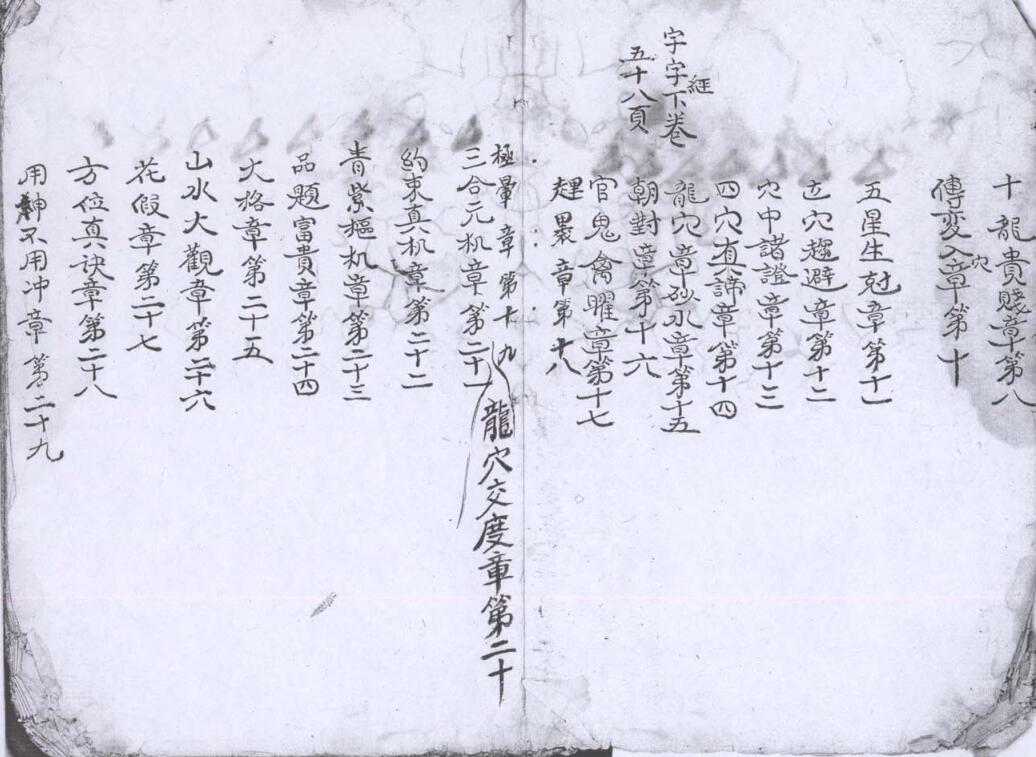 十龍貴賤章第八
傳變入穴章第十
五星生尅章第十一
立穴趨避章第十二
穴中諸證章第十三
四穴有諦章第十四
龍穴章砂水章第十五
字字經下卷
五十八頁
朝對章第十六
官鬼禽曜章第十七
章第十八
極暈章第十九
龍穴交度章第二十
三合元机章第二十一
約束真机章第二十二
青紫樞机章第二十三
品題富貴章第二十四
大格章第二十五
山水大觀章第二十六
花假章第二十七
方位真诀章第二十八
用神不用冲章第二十九